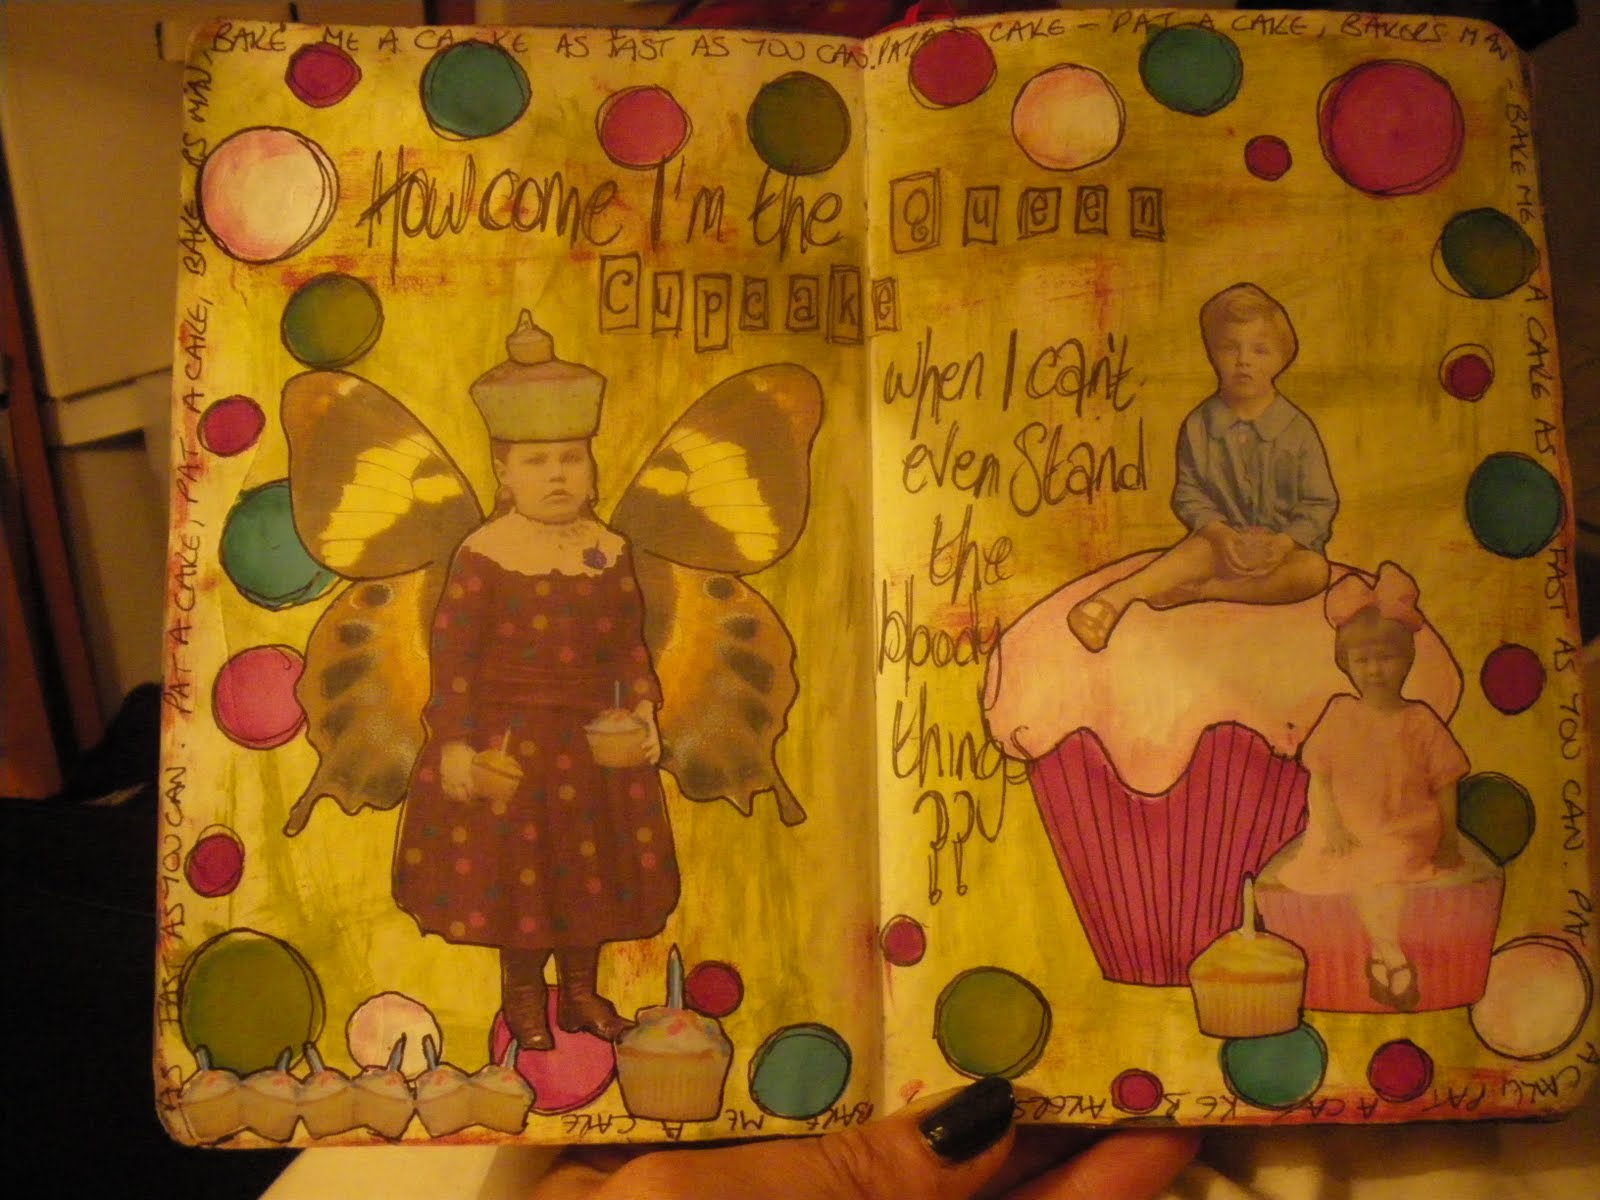 BAKE ME A CA-KE AS FAST AS YOU CAN. PAT A CAKE - PAT A CAKE, BAKERS MAN
How come I'm the Queen
Cupcake
when I can't
even Stand
the
bloody
things
??
- BAKE ME A CAKE AS FAST AS YOU CAN. PAT
A CAKE, PAT A CAKE BAKERS
BAKE ME A CAKE
AS FAST AS YOU CAN. PAT A CAKE, PAT A CAKE, BAKERS MAN,